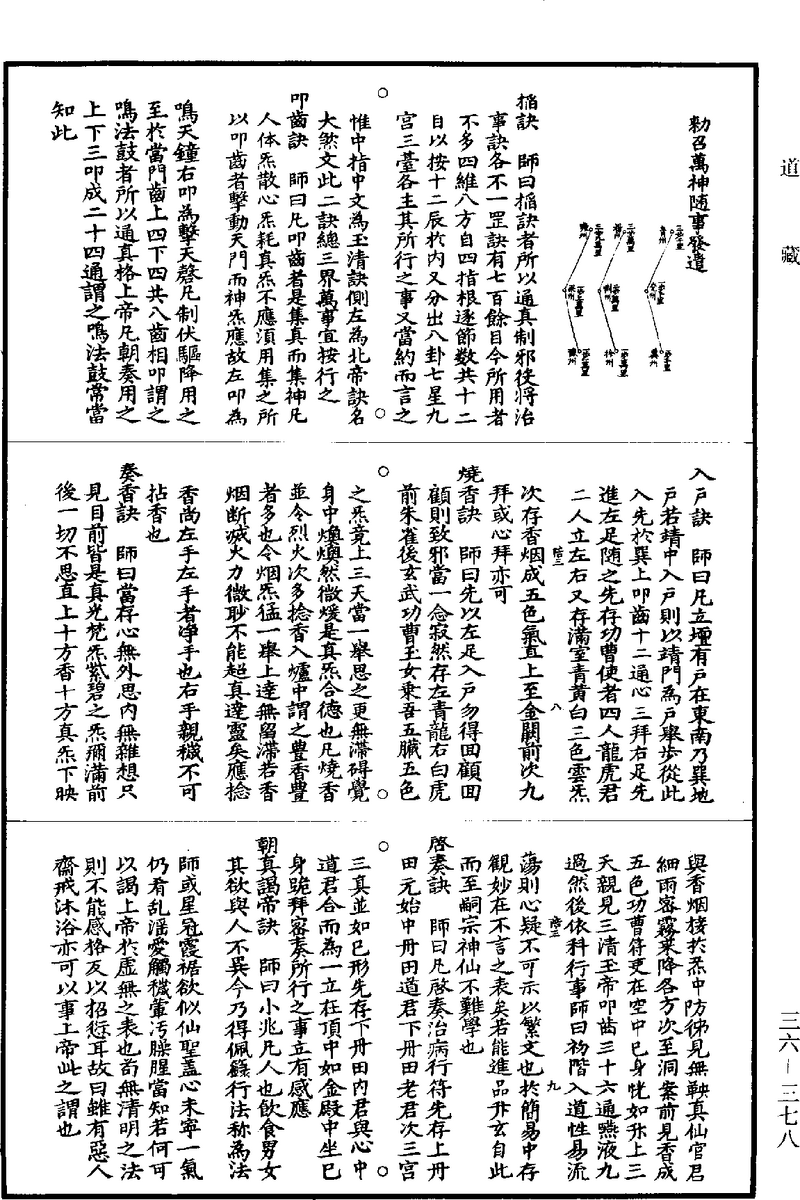 道藏
勑召萬神隨事發遣
搯訣　師曰搯訣者所以通真制邪役將治
事訣各不一罡訣有七百餘目今所用者
不多四維八方自四指根逐節数共十二
目以按十二辰於內又分出八卦七星九
宮三臺各主其所行之事又當約而言之
惟中指中文為玉清訣側左為北帝訣名
大煞文此二訣總三界萬事宜按行之
叩齒訣　師曰凡叩齒者是集真而集神凡
人体炁散心炁耗真炁不應湏用集之所
以叩齒者擊動天門而神炁應故左叩為
鳴天鐘右叩為擊天磬凡制伏驅降用之
至於當門齒上四下四共八齒相叩謂之
鳴法鼓者所以通真格上帝凡朝奏用之
上下三叩成二十四通謂之鳴法鼓常當
知此
入戶訣　師曰凡立壇有戶在東南乃巽地
戶若靖中入戶則以靖門為戶舉步從此
入先於巽上叩齒十二通心三拜右足先
進左足隨之先存功曹使者四人龍虎君
二人立左右又存滿室青黄白三色雲炁
次存香烟成五色氣直上至金闕前次九
拜或心拜亦可
燒香訣　師曰先以左足入戶勿得回顧回
顧則致邪當一念寂然存左青龍右白虎
前朱雀後玄武功曹玉女乗吾五臟五色
之炁竟上三天當一舉思之更無滯碍覺
身中煥煥然微煖是真炁合德也凡燒香
並令烈火次多捻香入爐中謂之豊香豊
者多也令烟炁猛一舉上達無留滯若香
烟断滅火力微眇不能超真達靈矣應捻
香尚左手左手者净手也右手親穢不可
拈香也
奏香訣　師曰當存心無外思內無雜想只
見目前皆是真光梵炁紫碧之炁彌滿前
後一切不思直上十方香十方真炁下映
與香烟接於炁中防彿見無鞅真仙官君
細雨密霧来降各方次至洞案前見香成
五色功曹符吏在空中已身恍如升上三
天親見三清玉帝叩齒三十六通嚥液九
過然後依科行事師曰初階入道性易流
蕩則心疑不可示以繁文也於簡易中存
觀妙在不言之表矣若能進品升玄自此
而至嗣宗神仙不難學也
啓奏訣　師曰凡啓奏治病行符先存上丹
田元始中丹田道君下丹田老君次三宮
三真並如已形先存下丹田內君與心中
道君合而為一立在頂中如金殿中坐已
身跪拜密奏所行之事立有感應
朝真謁帝訣　師曰小兆凡人也飲食男女
其欲與人不異今乃得佩籙行法称為法
師或星冠霞裾欲似仙聖盖心未寧一氣
仍有乱滛愛觸穢葷汚臊腥當知若何可
以謁上帝於虚無之表也苟無清明之法
則不能感格反以招愆耳故曰雖有惡人
齋戒沐浴亦可以事上帝此之謂也
三六－三七八